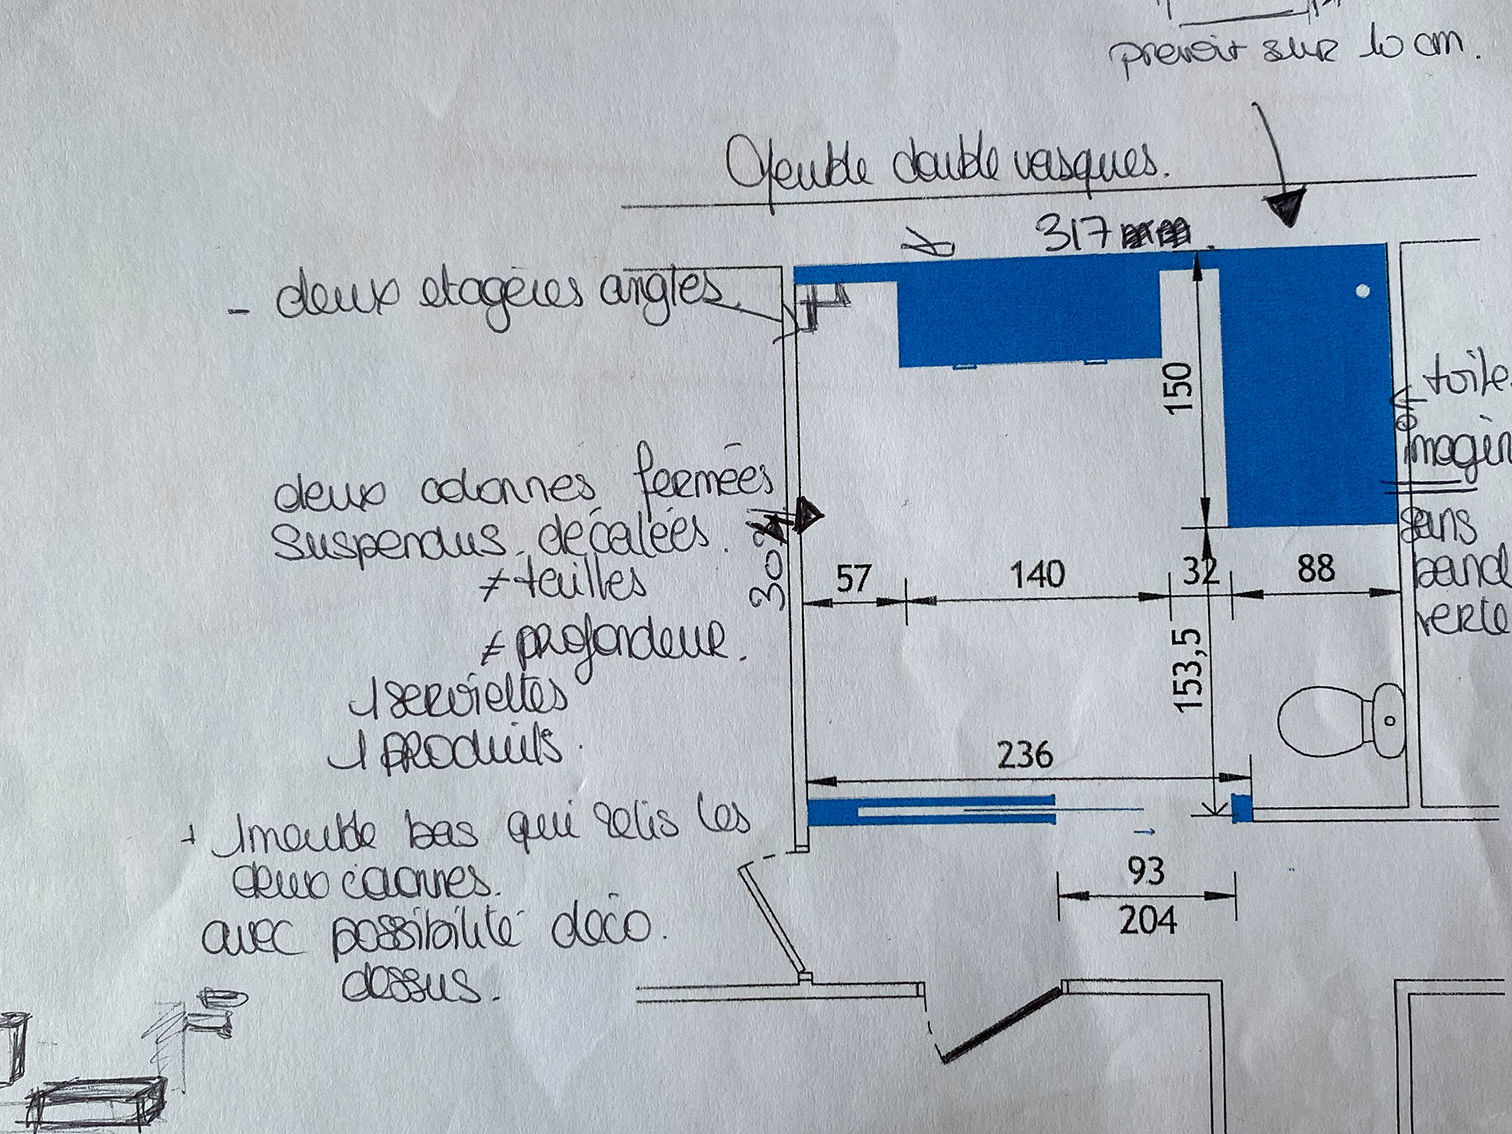 prevoir sur 10 cm.
Meuble double vasques.
317
- deux etagères angles.
150
toile
imagin
sans
band
verte
deux colonnes fermées
suspendus décalées.
≠ tailles
≠ profondeur.
1 serviettes
1 produits.
57
140
32
88
153,5
236
+ 1 meuble bas qui relis les
deux colonnes.
avec possibilité déco.
dessus.
93
204